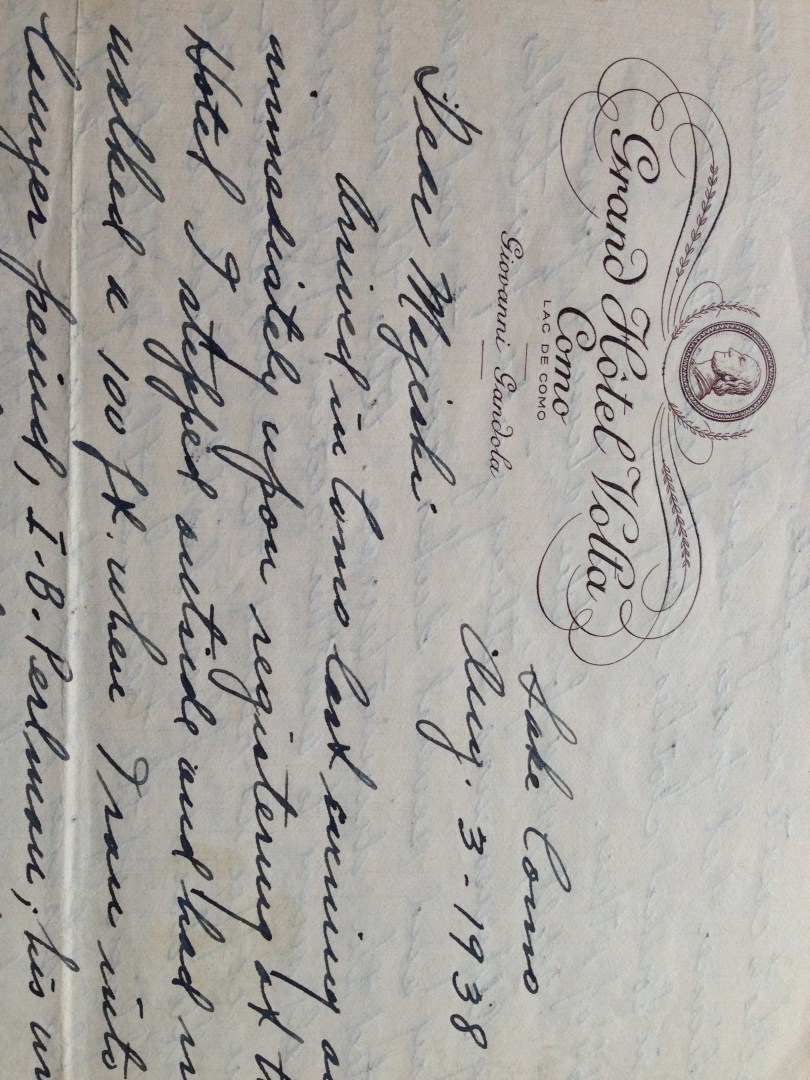 Grand Hôtel Volta
Como
LAC DE COMO
Giovanni Gandola
Lake Como
Aug. 3 - 1938
Dear Majeski
Arrived in Como last evening
immediately upon registering at
Hotel I stepped outside and had
walked a 100 ft. when I ran into
I. B. Perlman, his